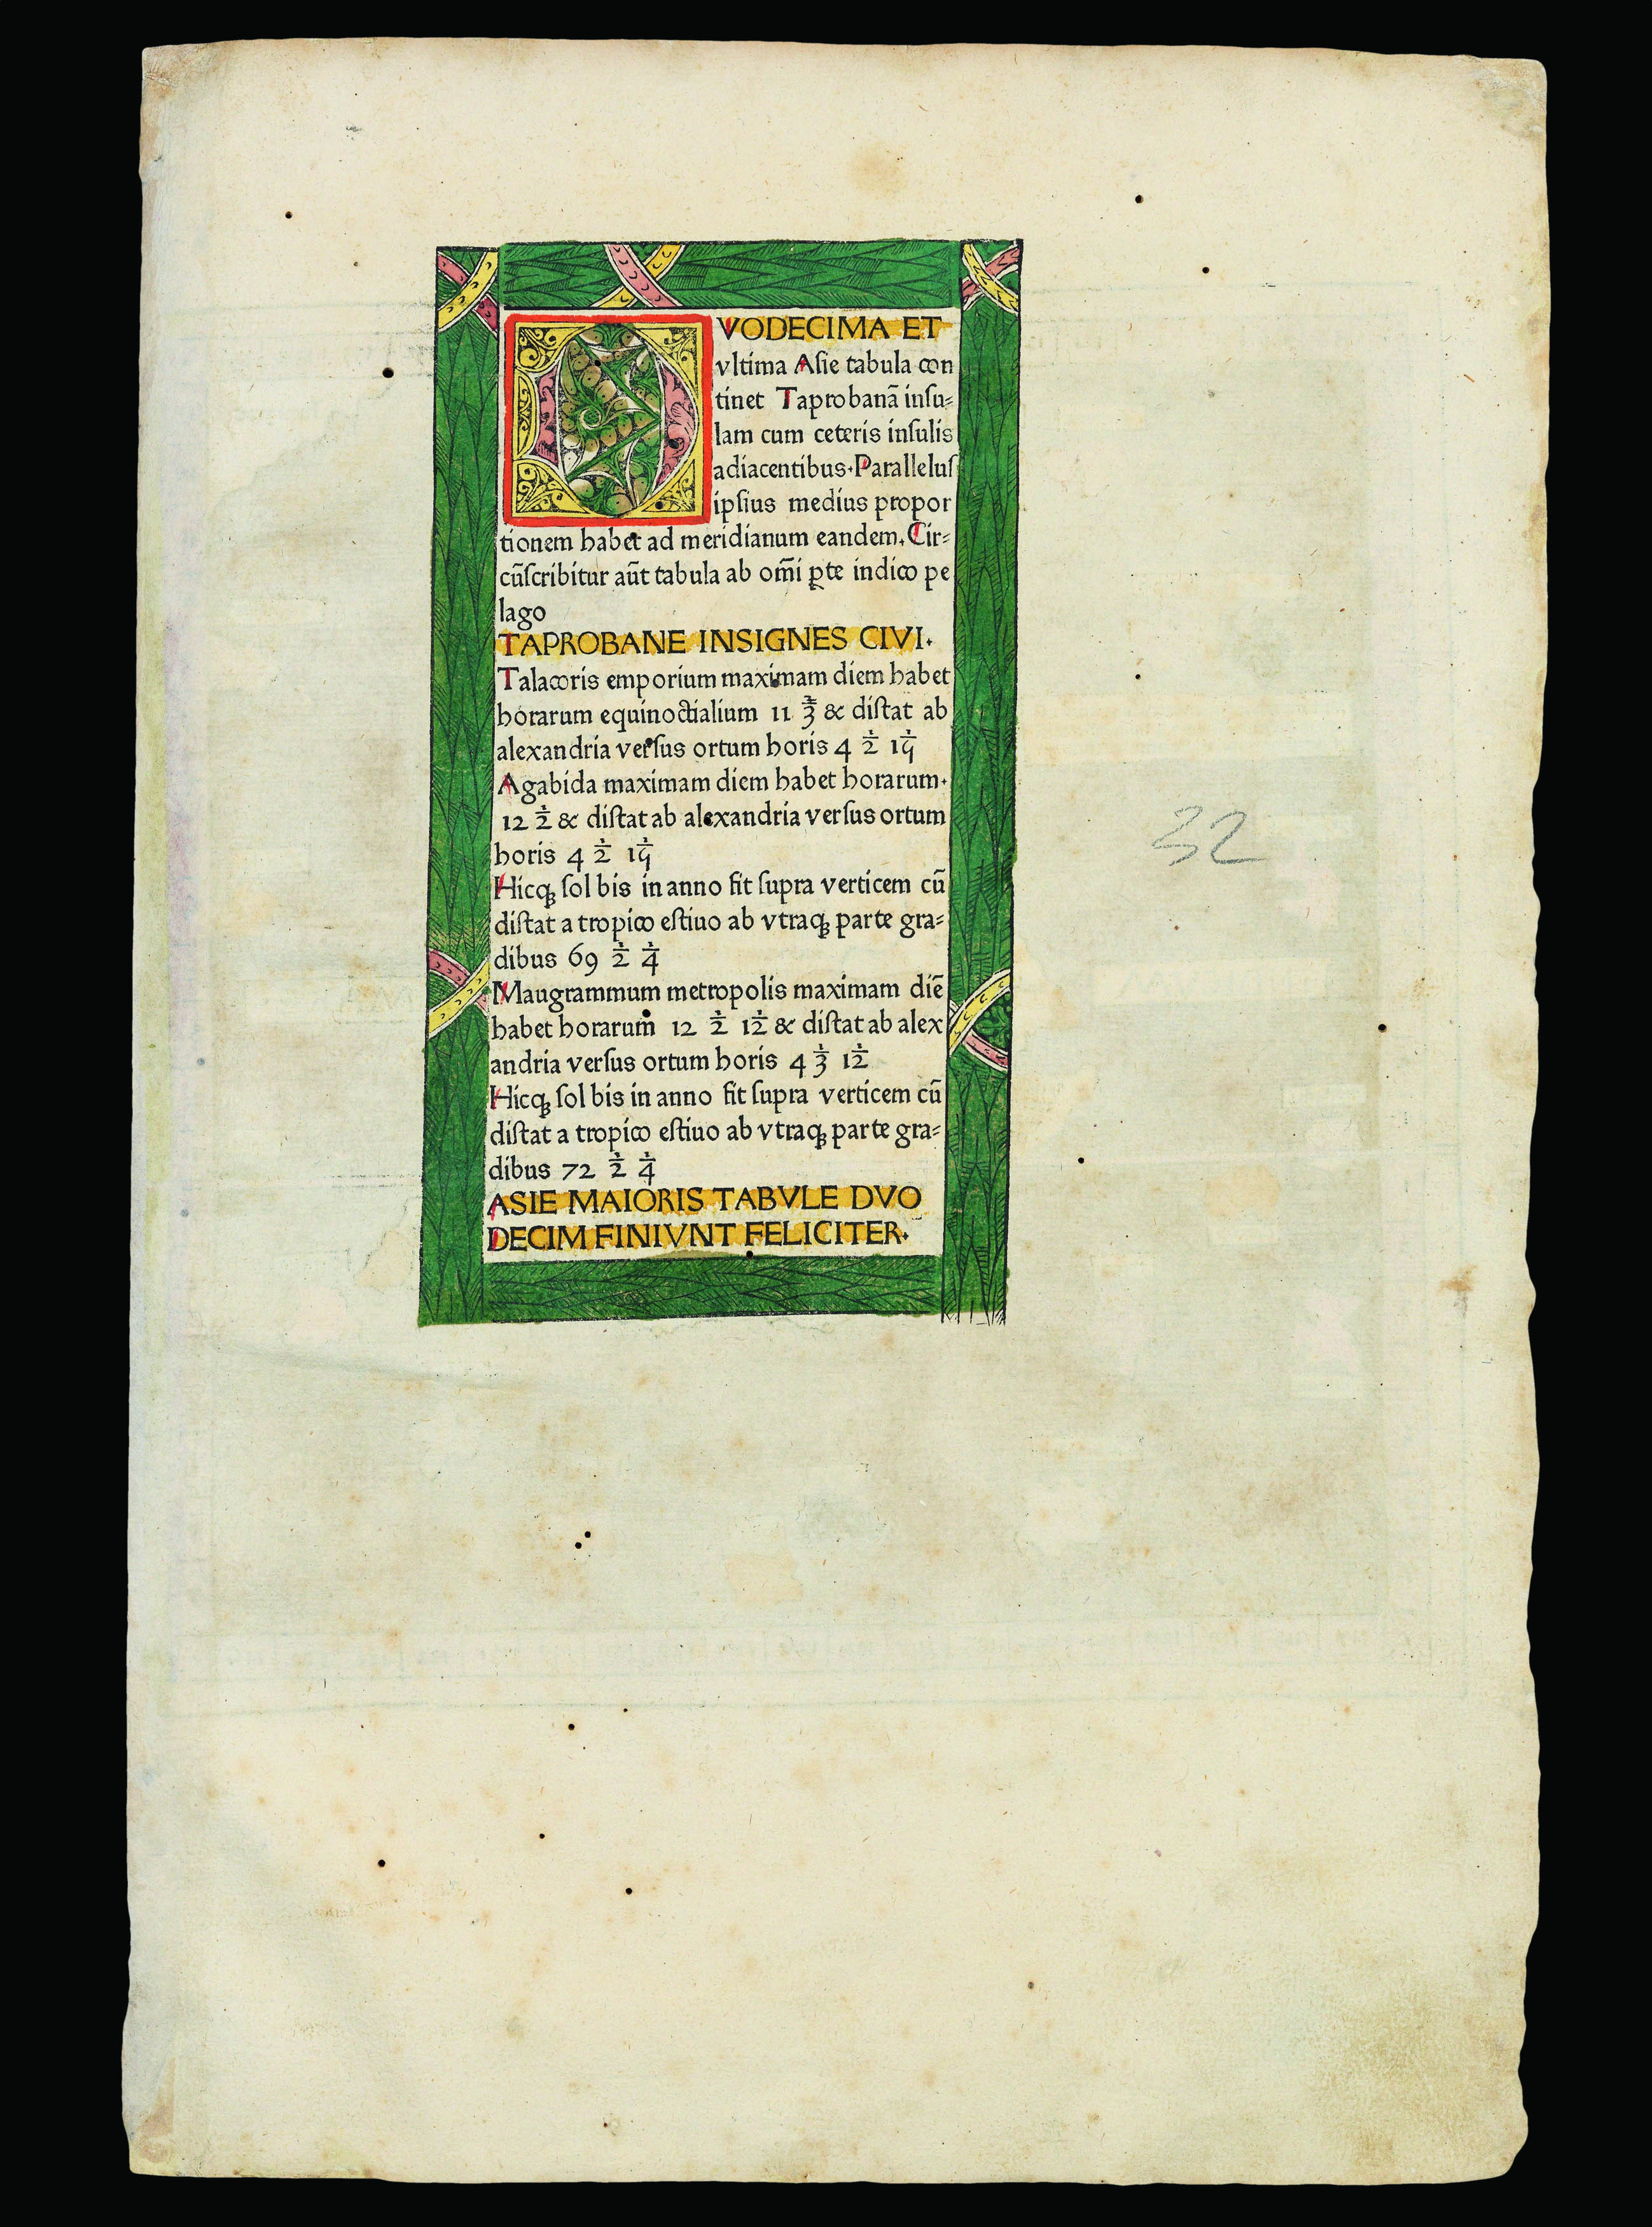 DVODECIMA ET
vltima Asie tabula con
tinet Taprobanã insu⸗
lam cum ceteris insulis
adiacentibus. Parallelus
ipsius medius propor
tionem habet ad meridianum eandem. Cir⸗
cũscribitur aũt tabula ab om̃i ꝑte indico pe
lago
TAPROBANE INSIGNES CIVI.
Talacoris emporium maximam diem habet
horarum equinoctialium 11 ⅔ & distat ab
alexandria versus ortum horis 4 ½
Agabida maximam diem habet horarum.
12 ½ & distat ab alexandria versus ortum
horis 4 ½
Hicqꝫ sol bis in anno fit supra verticem cũ
distat a tropico estiuo ab vtraqꝫ parte gra⸗
dibus 69 ½ ¼
Maugrammum metropolis maximam diẽ
habet horarum 12 ½ 1/12 & distat ab alex
andria versus ortum horis 4 ⅓ 1/12
Hicqꝫ sol bis in anno fit supra verticem cũ
distat a tropico estiuo ab vtraqꝫ parte gra⸗
dibus 72 ½ ¼
ASIE MAIORIS TABVLE DVO
DECIM FINIVNT FELICITER.
32